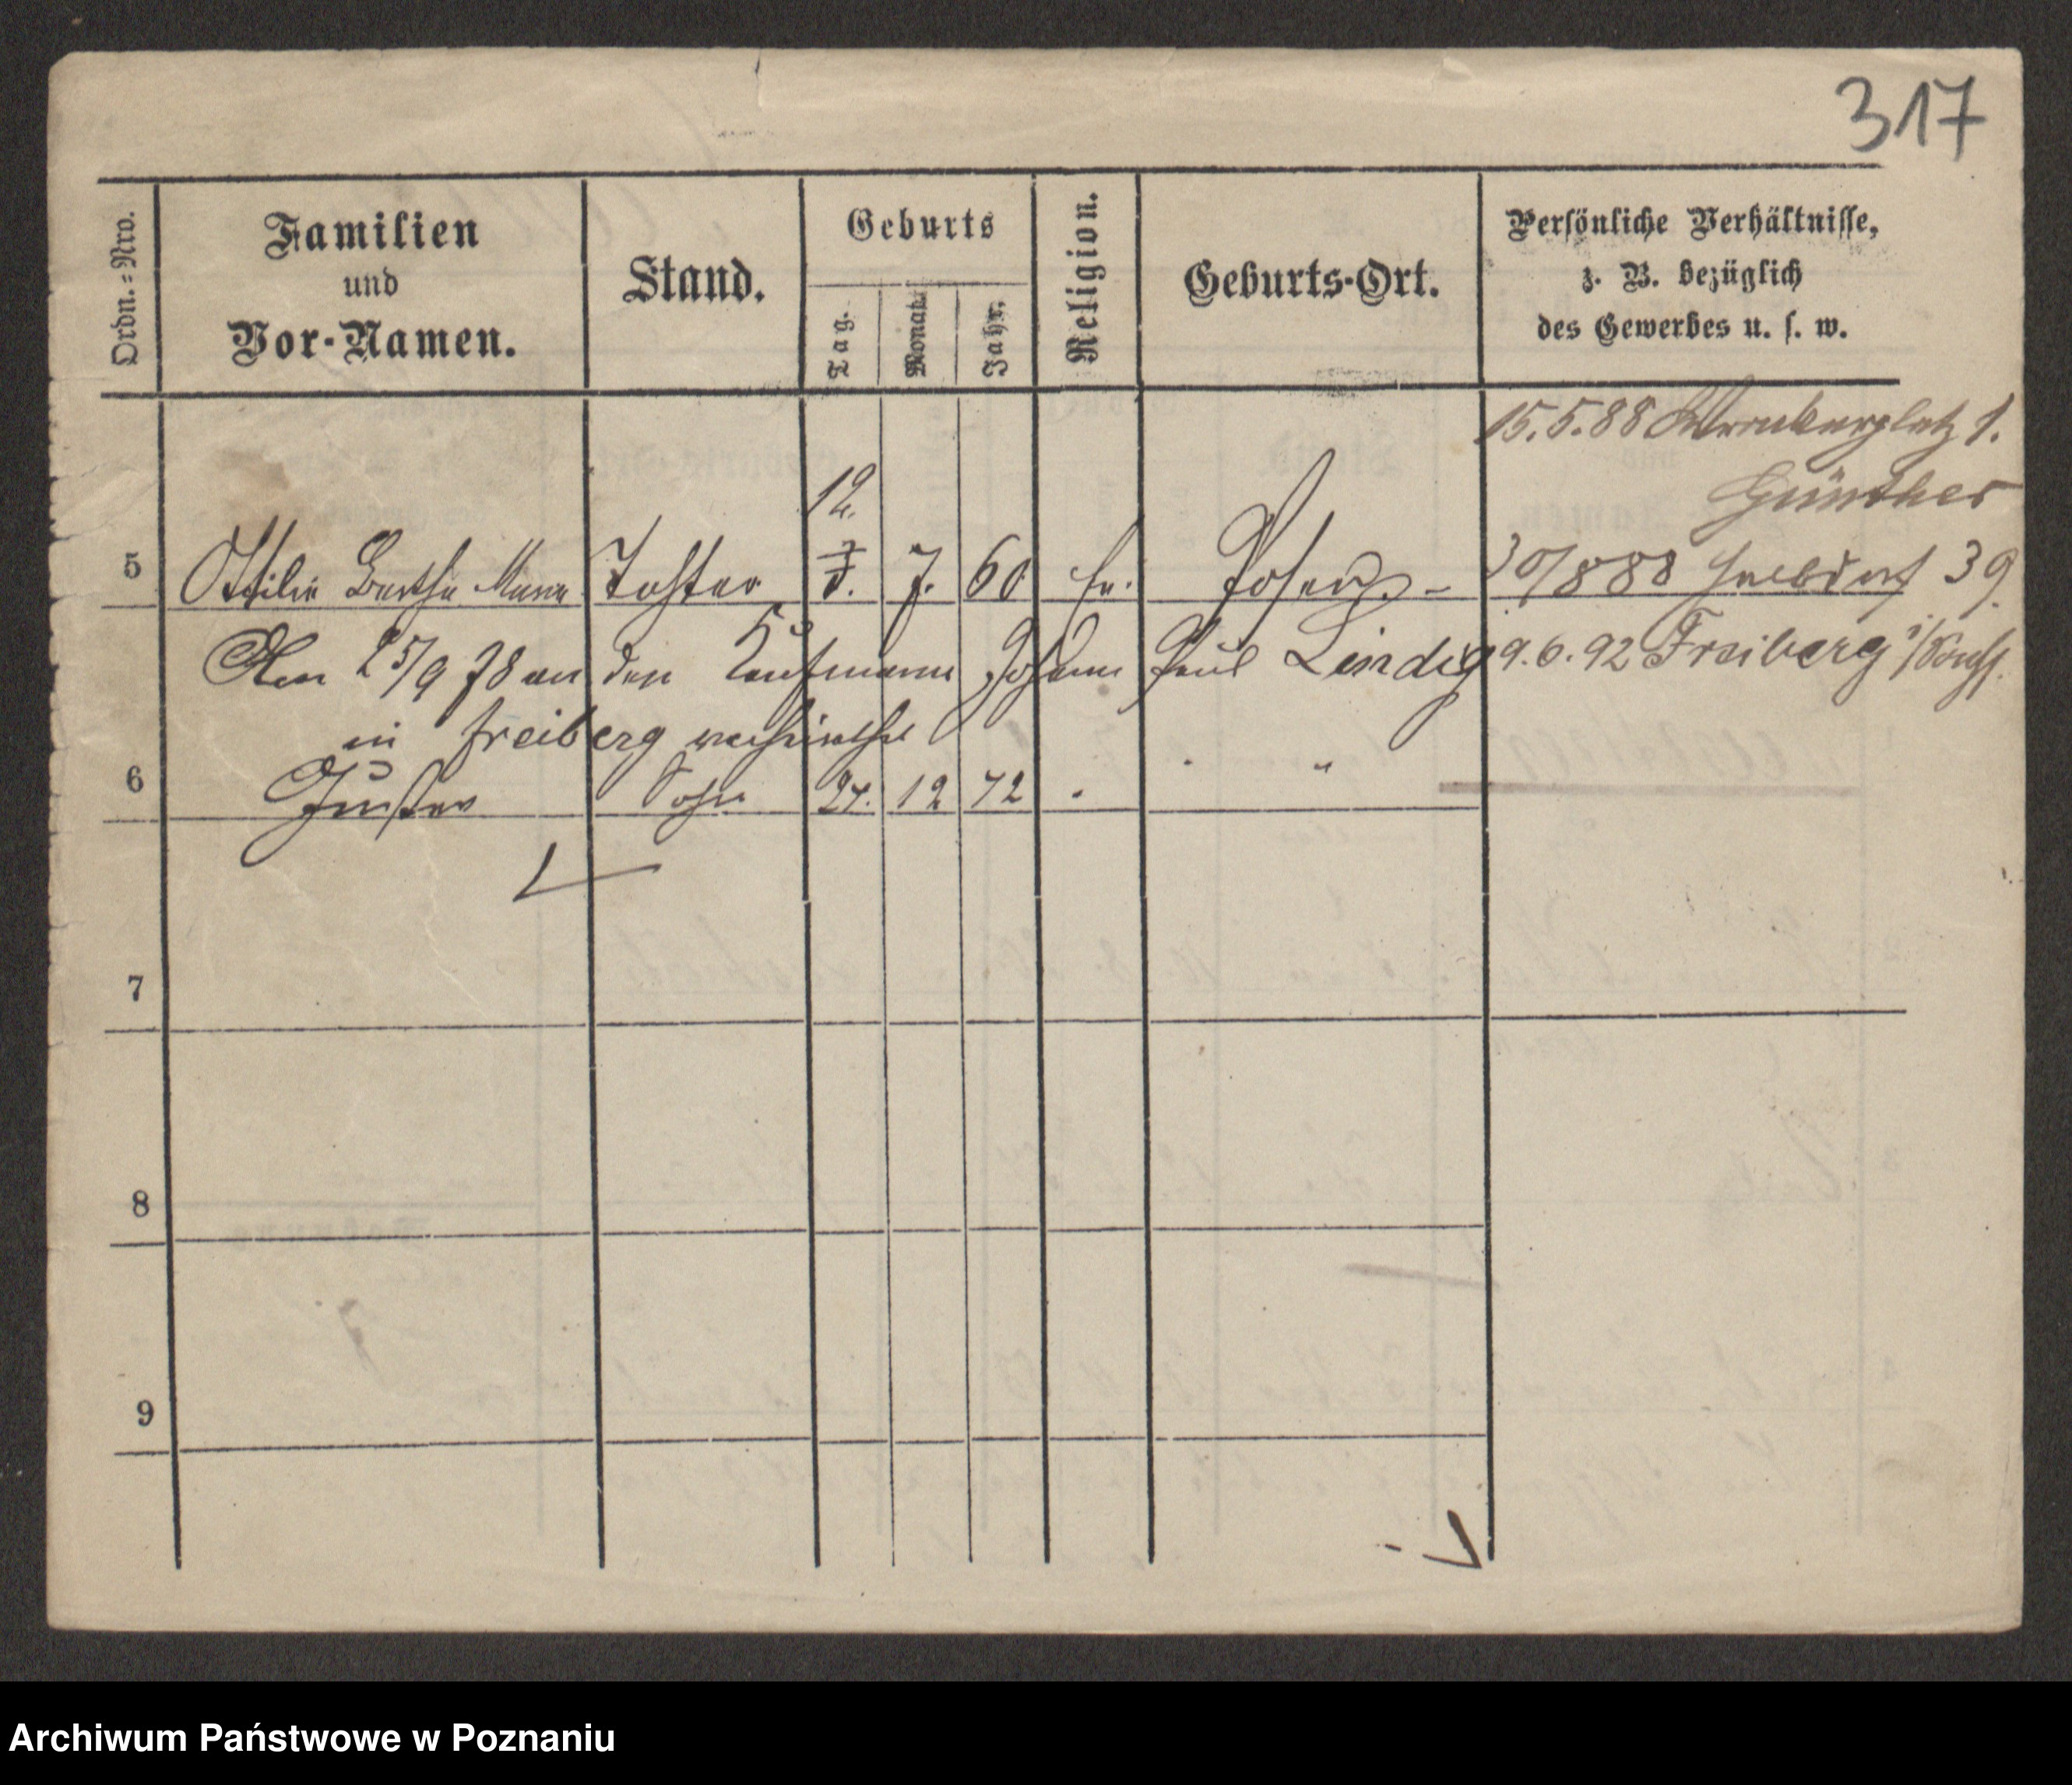 317
Ordn.=Nro.
Familien
und
Vor-Namen.
Stand.
Geburts
Tag.
Monat.
Jahr.
Religion.
Geburts-Ort.
Persönliche Verhältnisse,
z. B. bezüglich
des Gewerbes u. s. w.
15.5.88 1.
Günther
12.
5 Ottilie Bertha Tochter 7. 60 Posen
30/8 88 39
Am 25/9 78 an den Kaufmann Johann Paul Lindig
9.6.92 Freiberg i/
in Freiberg verheirathet
6 Gustav Sohn 24. 12 72
7
8
9
Archiwum Państwowe w Poznaniu